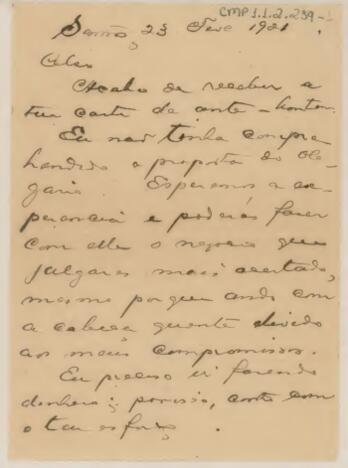 CMP 1.1.2.239-1
23 Fev. 1921.
Acabo de receber a
tua carta de ante-hontem.
Eu não tinha compre
hendido a proposta do Ole
gario. Esperamos a ex
periencia e poderás fazer
com elle o negocio que
julgares mais acertado,
mesmo porque ando com
a cabeça quente devido
aos meus compromissos.
Eu preciso ir fazendo
dinheiro; por isso, conto com
o teu esforço.